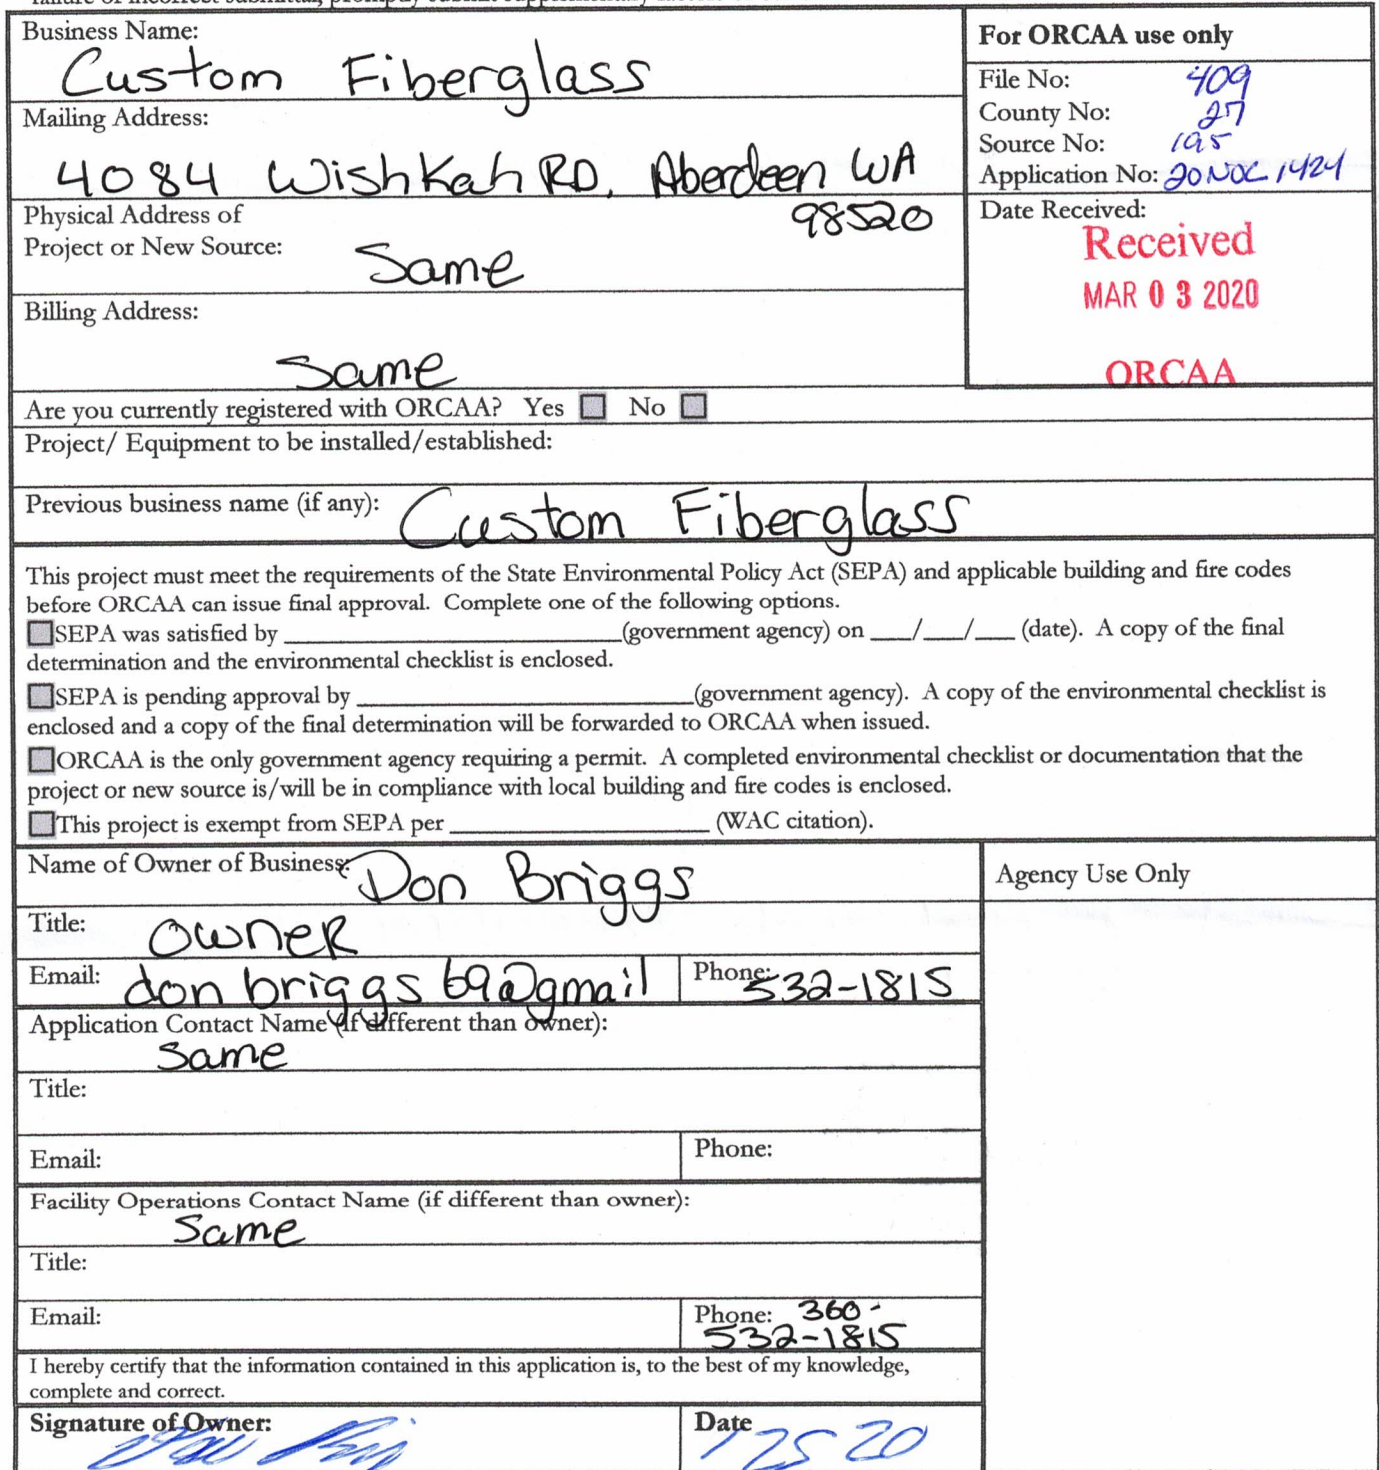 Business Name:
Custom Fiberglass
Mailing Address:
4084 Wishkah RD. Aberdeen WA
98520
Physical Address of
Project or New Source:
Same
Billing Address:
Same
For ORCAA use only
File No: 409
County No: 27
Source No: 195
Application No: 20NOC1424
Date Received:
Received
MAR 03 2020
ORCAA
Are you currently registered with ORCAA? Yes No
Project/ Equipment to be installed/established:
Previous business name (if any): Custom Fiberglass
This project must meet the requirements of the State Environmental Policy Act (SEPA) and applicable building and fire codes
before ORCAA can issue final approval. Complete one of the following options.
SEPA was satisfied by ____________________(government agency) on ___/___/___ (date). A copy of the final
determination and the environmental checklist is enclosed.
SEPA is pending approval by ____________________(government agency). A copy of the environmental checklist is
enclosed and a copy of the final determination will be forwarded to ORCAA when issued.
ORCAA is the only government agency requiring a permit. A completed environmental checklist or documentation that the
project or new source is/will be in compliance with local building and fire codes is enclosed.
This project is exempt from SEPA per ________________ (WAC citation).
Name of Owner of Business: Don Briggs
Title: OwneR
Email: donbriggs69@gmail Phone: 532-1815
Application Contact Name (if different than owner):
Same
Title:
Email: Phone:
Facility Operations Contact Name (if different than owner):
Same
Title:
Email: Phone: 360-
532-1815
I hereby certify that the information contained in this application is, to the best of my knowledge,
complete and correct.
Signature of Owner: Date
Agency Use Only